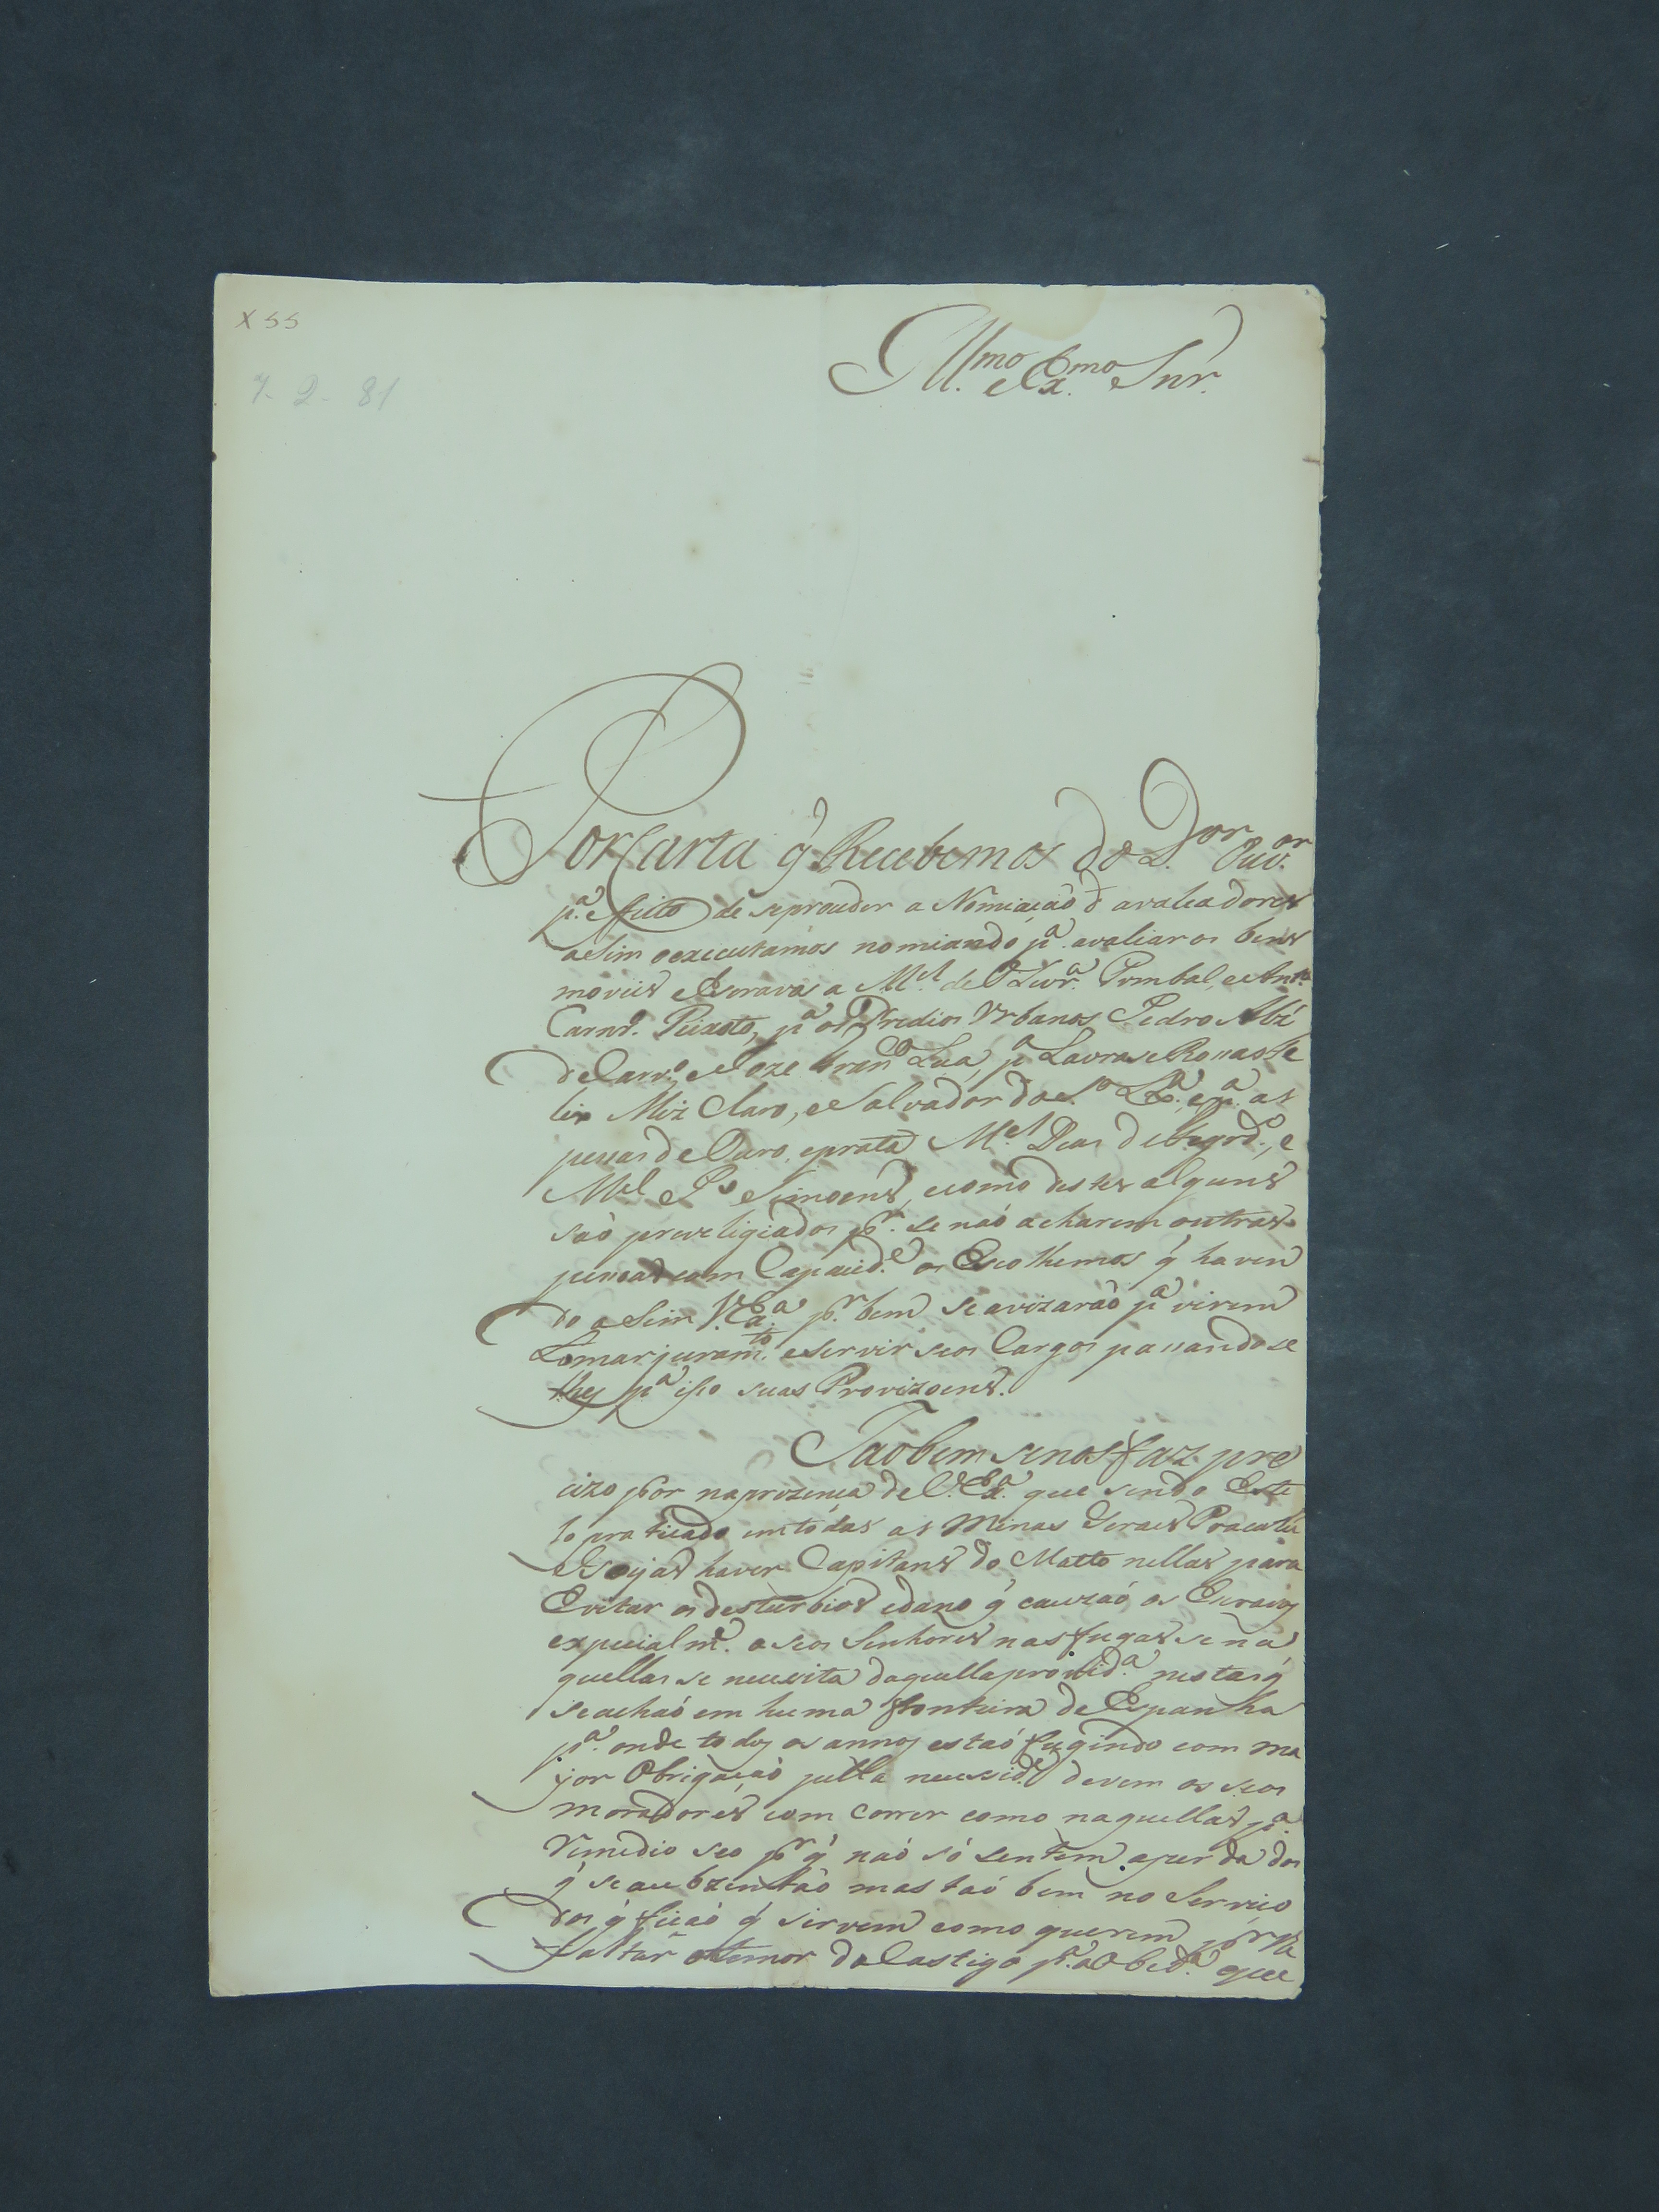 X55
7-2-81
Ill.mo e Ex.mo Snr.
Por Carta q̃ Recebemos do D.or Ouv.or
p.a effeito de seproceder a Nomiaçaõ d avaliadores
aSim oexecutamos nomiando p.a avaliar os bens
moveis eEscravos a M.el de Olivr.a Pombal, e Ant.o
Carnr.o Peixoto, p.a os Predios Vrbanos Pedro
de Carv.o eJoze p.a Lavras eRossas Fe
lix Miz Claro, eSalvador da S.a e p.a as
pessas de Ouro, eprata M.el Dias de e
M.el Simoens, ecomo destes alguns
saõ preveligiados p.r se naõ acharem outras
pessoas com Capacid.e os Escolhemos q̃ haven
do aSim V. Ex.a p.r bem se avizaraõ p.a virem
Tomar juram.to eServir seos Cargos passandose
lhes p.a iso suas Provizoens.
Taobem senos faz pre
cizo por naprezença de V. Ex.a que sendo Esti
lo praticado emtodas as Minas Geraes Pracatú
eGoyas haver Capitans do Matto nellas para
Evitar os desturbios edano q̃ cauzaõ os Escravos
expecialm.e a seos Senhores nas fugas se na
quellas se necessita daquella provid.a nestas q̃
se achaõ em huma fronteira de Espanha
p.a onde todos os annos estaõ fugindo com ma
jor Obrigaçaõ pella necessid.e devem os seos
moradores com correr como naquellas p.a
remedio seo p.r q̃ naõ só sentem aperda dos
q̃ se aubzentaõ mas taõ bem no Serviço
dos q̃ ficaõ q̃ servem como querem p.r lhe
faltar otemor do Castigo p.a a Obed.a que